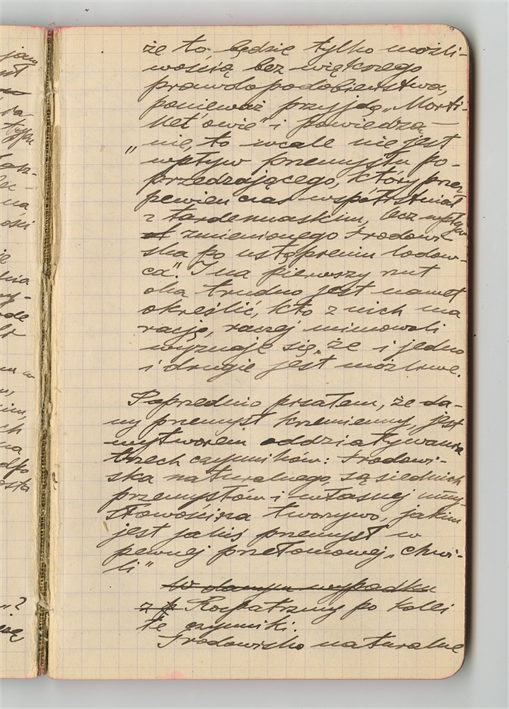 że to będzie tylko możli-
wością bez większego
prawdopodobieństwa,
ponieważ przyjdą „Morti-
llet'owie” i powiedzą —
„nie, to wcale nie jest
wpływ przemysłu po-
przedzającego, który przez
pewien czas współistniał
z tardenuaskim, lecz wpływ
zmienionego środowi-
ska po ustąpieniu lodow-
ca”. I na pierwszy rzut
oka trudno jest nawet
określić, kto z nich ma
rację, raczej mimowoli
wyznaje się, że i jedno
i drugie jest możliwe.
Poprzednio pisałem, że da-
ny przemysł krzemienny, jest
wytworem oddziaływania
trzech czynników: środowi-
ska naturalnego, sąsiednich
przemysłów i własnej umy-
słowości na tworzywo, jakim
jest jakiś przemysł w
pewnej przełomowej „chwi-
li”
W danym wypadku
Rozpatrzmy po kolei
te czynniki.
Środowisko naturalne